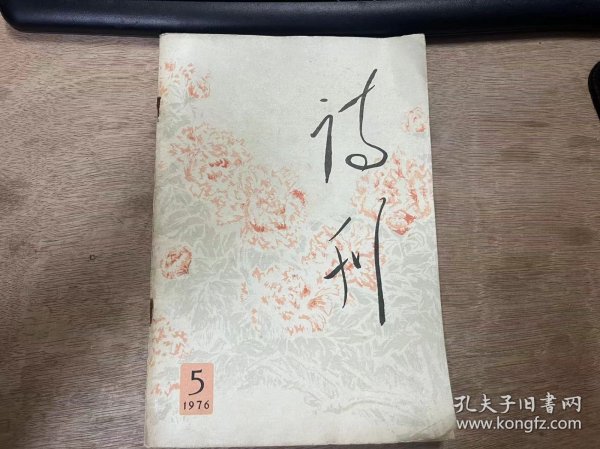 诗刊
5
1976
孔夫子旧書网
www.kongfz.com